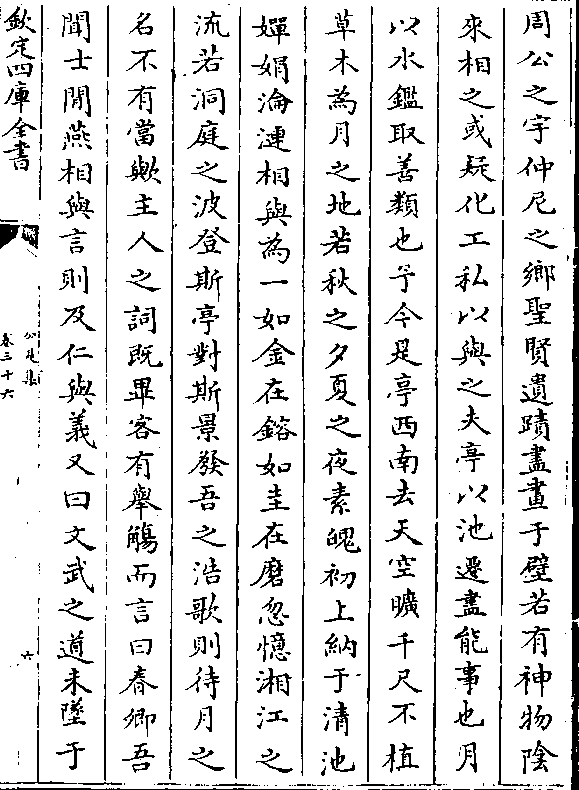 周公之宇仲尼之鄉聖賢遺蹟盡畫于壁若有神物陰
來相之或疑化工私以與之夫亭以池遷盡能事也月
以水鑑取善類也予今是亭西南去天空曠千尺不植
草木為月之地若秋之夕夏之夜素魄初上納于清池
嬋娟淪漣相與為一如金在鎔如圭在磨忽憶湘江之
流若洞庭之波登斯亭對斯景發吾之浩歌則待月之
名不有當歟主人之詞既畢客有舉觴而言曰春卿吾
聞士閒燕相與言則及仁與義又曰文武之道未墜于
欽定四庫全書
公是集
卷三十六
六